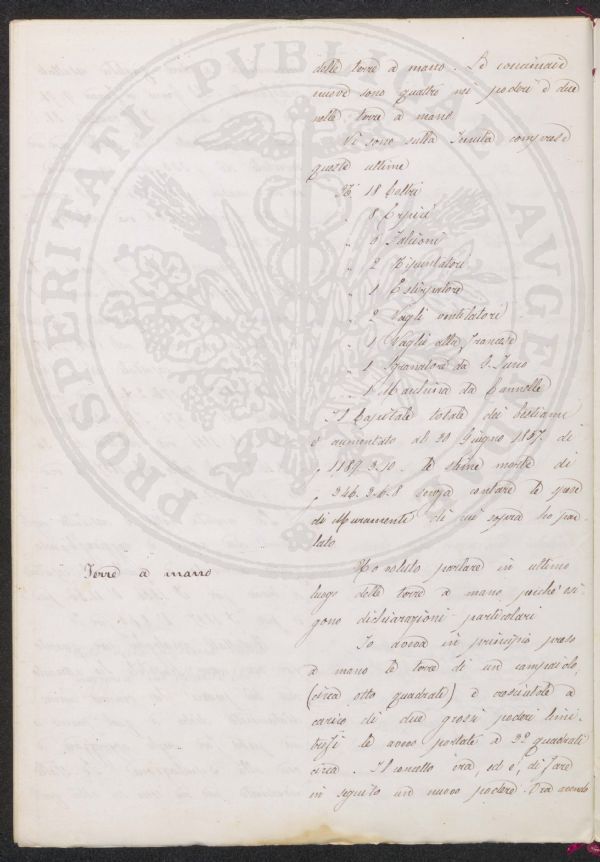 PROSPERITATI PVBLICAE AVGENDAE
delle terre a mano. Le concimaie
nuove sono quattro nei poderi e due
nelle terre a mano
Vi sono sulla Tenuta comprese
queste ultime
N. 18 Coltri
" 8 Erpici
" 6 Falcioni
" 2 Ripuntatori
" 1 Estirpatore
" 2 Vagli ventilatori
" 1 Vaglio alla francese
" 1 Sgranatore da G. Turco
" 1 Macchina da Cannelle
Il Capitale totale dei bestiami
è aumentato al 30 Giugno 1857. di
1189. 3. 10. le stime morte di
346. 3. 6. 8 senza contare le spese
di Muramente di cui sopra ho par
lato
Terre a mano
Ho voluto parlare in ultimo
luogo delle terre a mano, perchè esi
gono dichiarazioni particolari
Io aveva in principio preso
a mano le terre di un campaiolo,
(circa otto quadrati) e cresciutole a
carico di due grossi poderi limi
trofi le avevo portate a 32 quadrati
circa. Il concetto era, ed è, di fare
in seguito un nuovo podere. Ora avendo